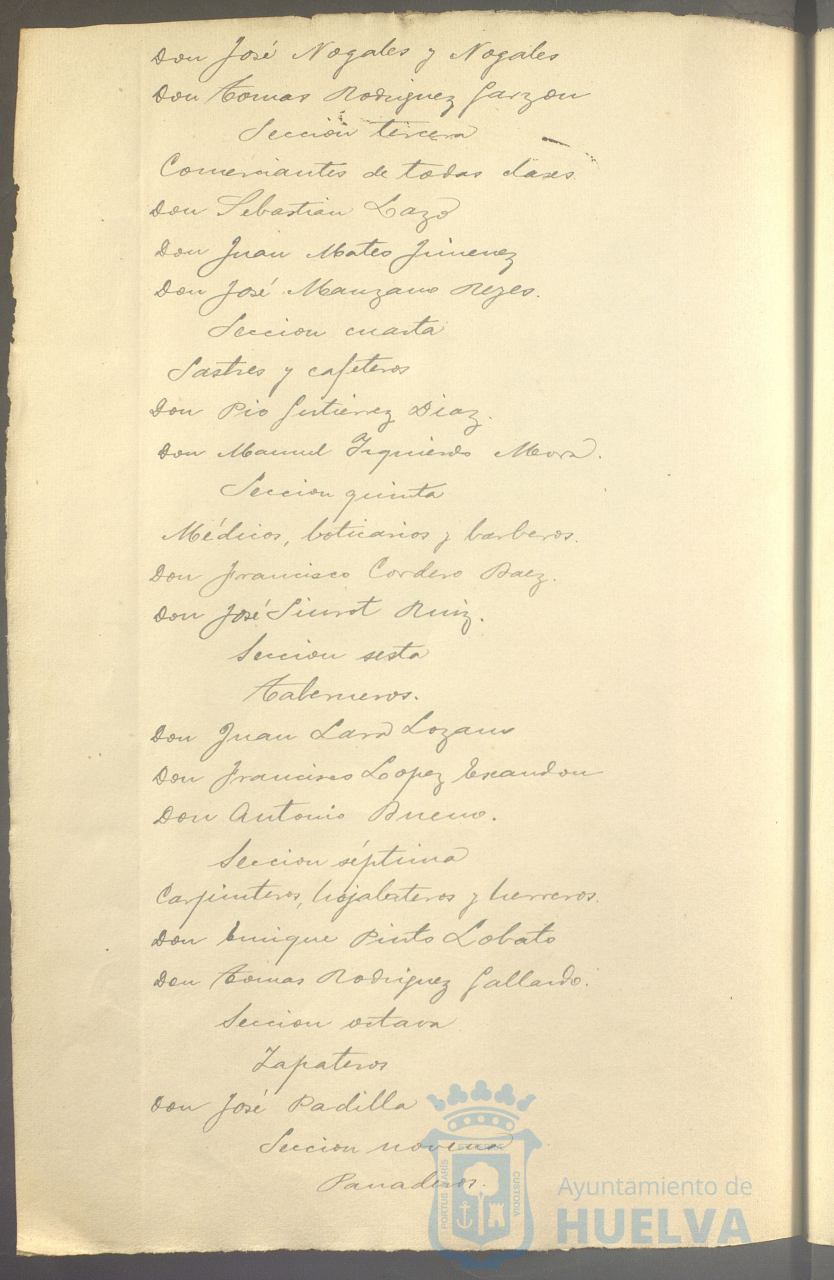 Don José Nogales y Nogales
Don Tomas Rodriguez Garzon
Seccion tercera
Comerciantes de todas clases.
Don Sebastian Lazo
Don Juan Mateo Jimenez
Don José Manzano Reyes.
Seccion cuarta
Sastres y cafeteros
Don Pio Gutierrez Diaz.
Don Manuel Izquierdo Mora.
Seccion quinta
Médicos, boticarios y barberos.
Don Francisco Cordero Baez.
Don José Siurot Ruiz.
Seccion sesta
Taberneros.
Don Juan Lara Lozano
Don Francisco Lopez Escandon
Don Antonio Bueno.
Seccion séptima
Carpinteros, hojalateros y herreros.
Don Enrique Pinto Lobato
Don Tomas Rodriguez Gallardo.
Seccion octava
Zapateros
Don José Padilla
Seccion novena
Panaderos.
PORTUS MARIS CUSTODIA
Ayuntamiento de
HUELVA